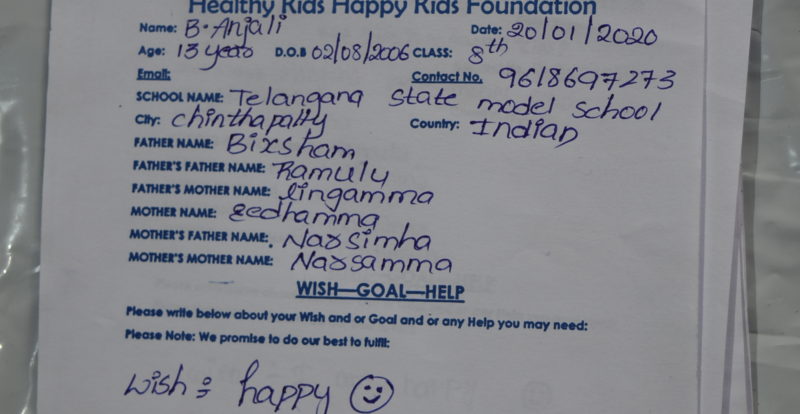 Healthy Kids Happy Kids Foundation
Name: B. Anjali Date: 20/01/2020
Age: 13 years D.O.B 02/08/2006 CLASS: 8th
Email: Contact No. 9618697273
SCHOOL NAME: Telangana State model school
City: chinthapally Country: Indian
FATHER NAME: Bixsham
FATHER'S FATHER NAME: Ramuly
FATHER'S MOTHER NAME: lingamma
MOTHER NAME: eedhamma
MOTHER'S FATHER NAME: Narsimha
MOTHER'S MOTHER NAME: Narsamma
WISH—GOAL—HELP
Please write below about your Wish and or Goal and or any Help you may need:
Please Note: We promise to do our best to fulfil:
wish : happy